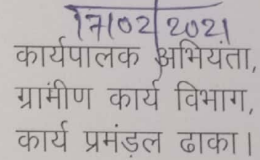 17/02/2021
कार्यपालक अभियंता,
ग्रांमीण कार्य विभाग,
कार्य प्रमंड़ल ढाका।